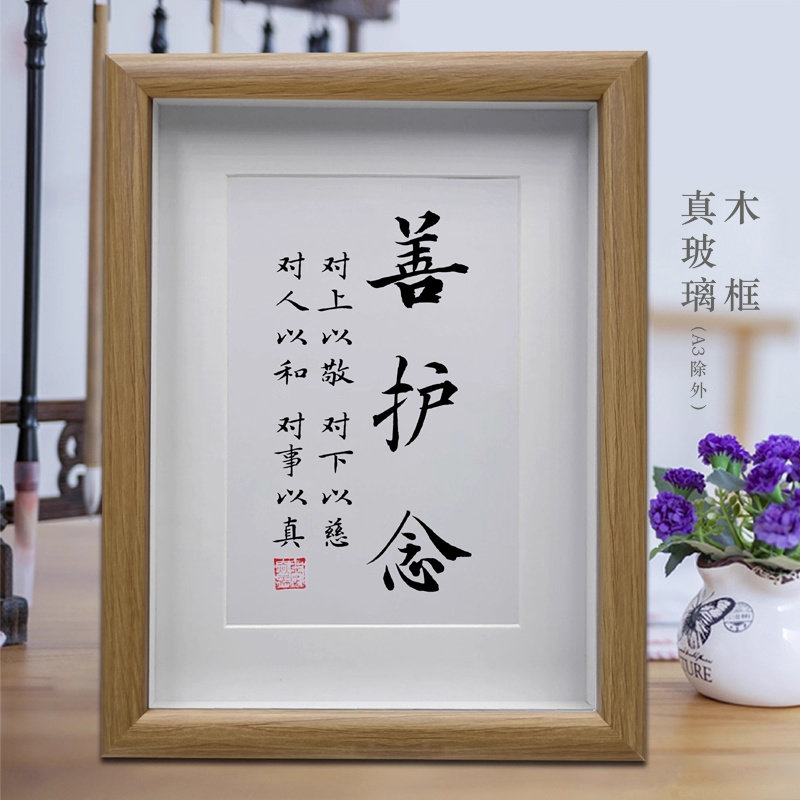 善护念
对上以敬 对下以慈
对人以和 对事以真
木框
真玻璃(A3除外)
TURE